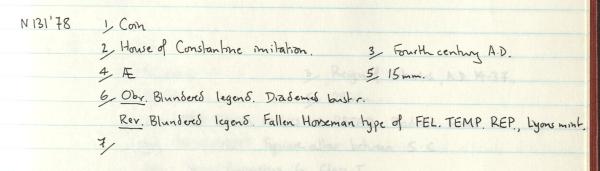 N 131 '78 1, Coin
2, House of Constantine imitation. 3, Fourth century A.D.
4, Æ 5, 15mm.
6, Obv. Blundered legend. Diademed bust r.
Rev. Blundered legend. Fallen Horseman type of FEL. TEMP. REP., Lyons mint.
7,